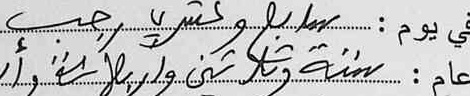 في يوم : سابع وعشري رجب
عام : ستة وثلاثين وأربعمائة وأ